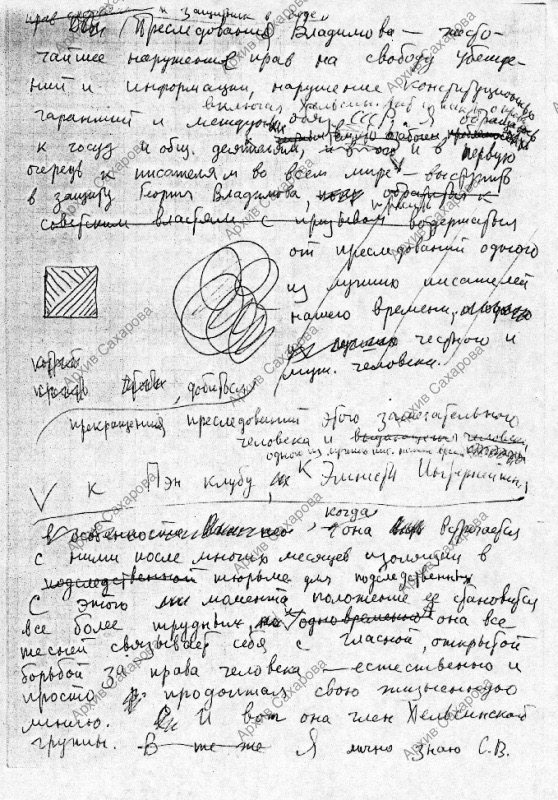 и защитник в
Преследования Владимова — жесто-
чайшее нарушение прав на свободу убежде-
ний и информации, нарушение конституционных
включая
гарантий и междун. СССР. Я обращаюсь
к госуд. и общ. деятелям, и в первую
очередь к писателям во всем мире — выступить
в защиту Георгия Владимова,
советским властям с призывом воздержаться
от преследований одного
из лучших писателей
нашего времени, честного и
муж. человека.
добиться
прекращения преследований этого замечательного
человека и
к Пэн клубу, к Эмнести Интернейшнл
когда
в особенности она встречается
с ними после многих месяцев изоляции в
тюрьме для подследственных
С этого момента положение ее становится
все более трудным, одновременно она все
тесней связывает себя с гласной, открытой
борьбой за права человека — естественно и
просто продолжая свою жизненную
линию. И вот она член Хельсинкской
группы. В те же Я лично знаю С.В.
Архив Сахарова